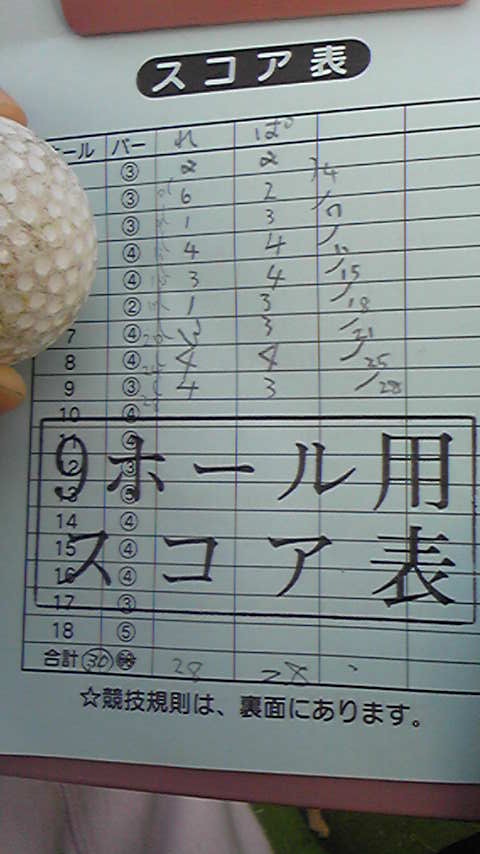 スコア表
ホール パー れ ぱ
③ 2 2 4
③ 6 2
③ 1 3 7
④ 4 4
④ 3 4 15
② 1 3 18
7 ④ 3 3 21
8 ④ 4 4 25
9 ③ 4 3 28
10 ④
9ホール用
スコア表
14 ④
15 ④
16 ④
17 ③
18 ⑤
合計 30 28 28
☆競技規則は、裏面にあります。